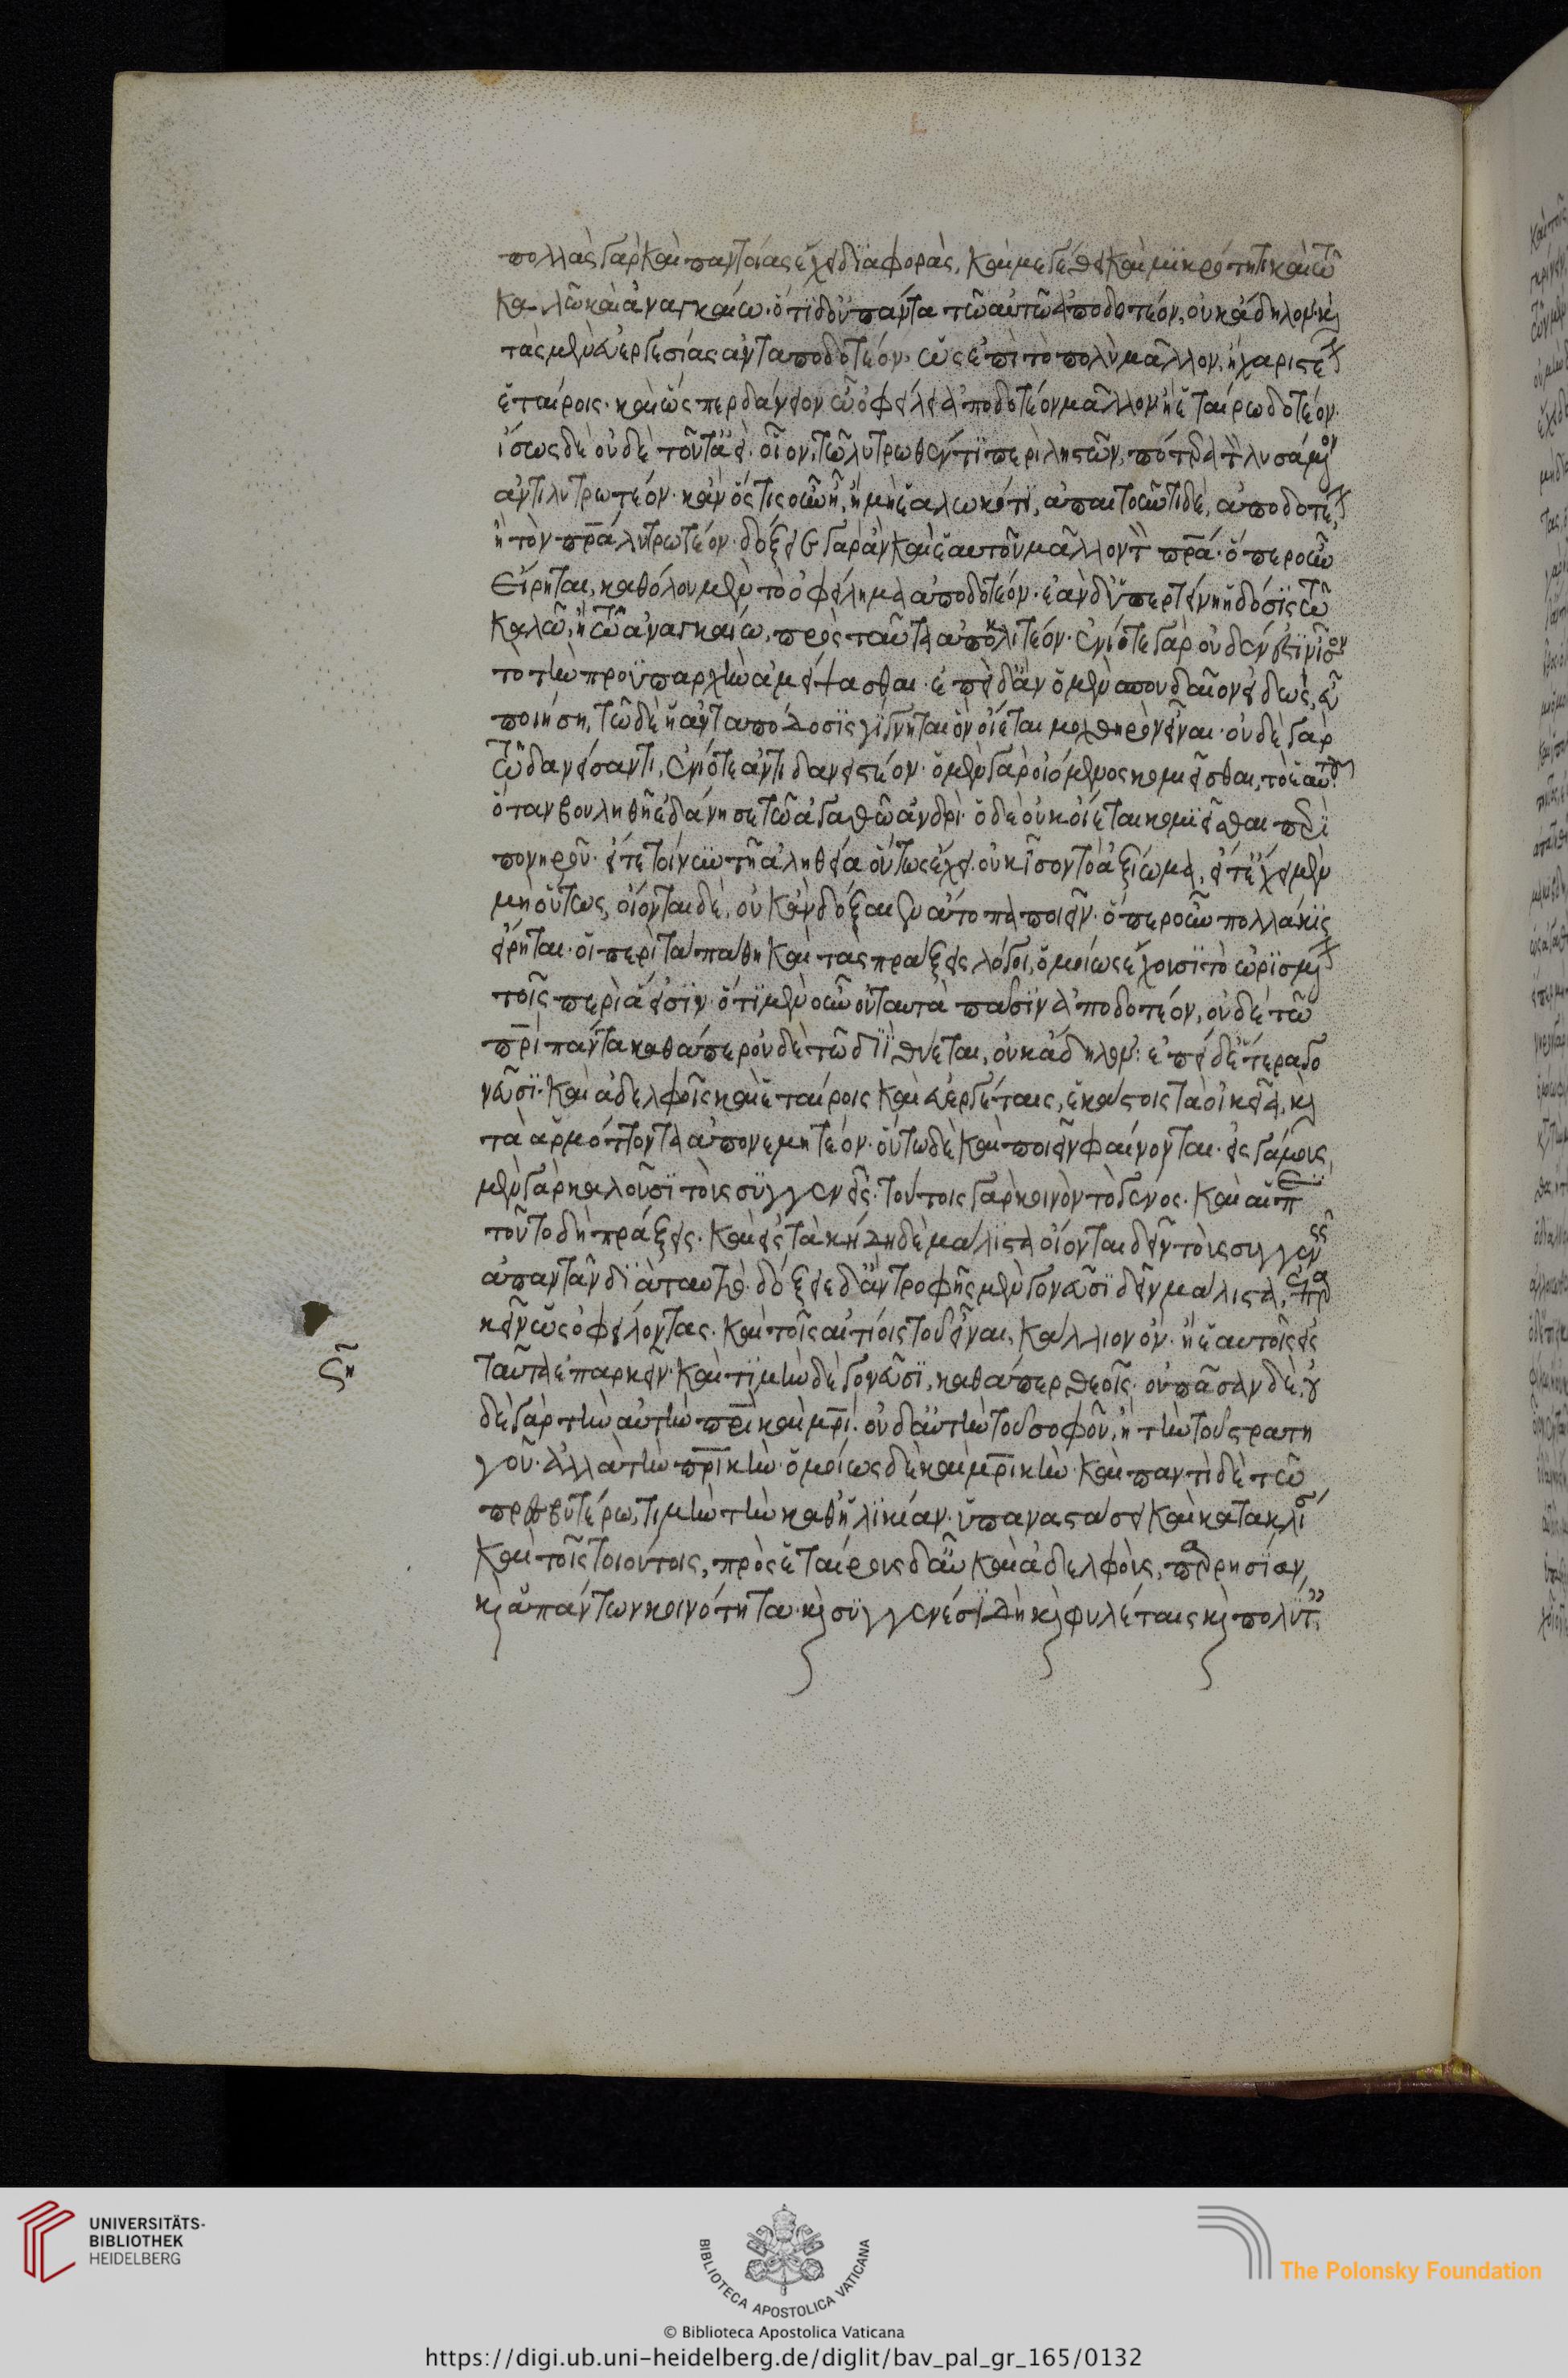 πολλὰς γὰρ καὶ παντοίας ἔχει διαφορὰς, καὶ μεγέθει καὶ μικρότητι καὶ τῶ
καλῶ καὶ ἀναγκαίω· ὅτι δ' οὐ πάντα τῶ αὐτῶ ἀποδοτέον, οὐκ ἄδηλον· καὶ
τὰς μὲν εὐεργεσίας ἀνταποδοτέον· ὡς ἐπὶ τὸ πολὺ μᾶλλον, ἢ χαριστέον
ἑταίροις· καὶ ὥσπερ δάνειον ὧ ὀφείλει ἀποδοτέον μᾶλλον ἢ ἑταίρω δοτέον·
ἴσως δὲ οὐδὲ τοῦτ' ἀεί· οἷον, τῶ λυτρωθέντι περὶ ληστῶν, πότερα τὸν λυσάμενον
ἀντιλυτρωτέον· κἂν ὅστις οὖν ἦ, ἢ μὴ ἑαλωκότι, ἀπαιτοῦντι δὲ, ἀποδοτέον,
ἢ τὸν πρα λυτρωτέον· δόξειε γὰρ ἂν καὶ ἑαυτοῦ μᾶλλον τὸν πρα· ὅπερ οὖν
εἴρηται, καθόλου μὲν τὸ ὀφείλημα ἀποδοτέον· ἐὰν δ' ὑπερτείνη ἡ δόσις τῶ
καλῶ, ἢ τῶ ἀναγκαίω, πρὸς ταῦτα ἀποκλιτέον· ἐνίοτε γὰρ οὐδ' ἐν ἐστὶν ἴσον
τὸ τὴν προϋπαρχὴν ἀμείψασθαι· ἐπειδὰν ὁ μὲν σπουδαῖον εἰδὼς, εὖ
ποιήση, τῶ δὲ ἡ ἀνταπόδοσις γίγνηται ὃν οἴεται μοχθηρὸν εἶναι· οὐδὲ γὰρ
τῶ δανείσαντι, ἐνίοτε ἀντιδανειστέον· ὁ μὲν γὰρ οἰόμενος κομιεῖσθαι, τὸ ἑαυτοῦ
ὅταν βουληθῆ ἐδάνησε τῶ ἀγαθῶ ἀνδρί· ὁ δὲ οὐκ οἴεται κομιεῖσθαι παρὰ
πονηροῦ· εἴτε τοίνυν τῆ ἀληθεία οὕτως ἔχει· οὐκ ἴσον τὸ ἀξίωμα, εἴτ' ἔχει μὲν
μὴ οὕτως, οἴονται δὲ, οὐκ ἂν δόξαιεν ἄτοπα ποιεῖν· ὅπερ οὖν πολλάκις
εἴρηται· οἱ περὶ τὰ πάθη καὶ τὰς πράξεις λόγοι, ὁμοίως ἔχουσι τὸ ὡρισμένον
τοῖς περὶ ἅ εἰσιν· ὅτι μὲν οὖν οὐ ταυτὰ πᾶσιν ἀποδοτέον, οὐδὲ τῶ
πρι πάντα καθάπερ οὐδὲ τῶ διὶ θύεται, οὐκ ἄδηλον: ἐπεὶ δ' ἕτερα γο
νεῦσι· καὶ ἀδελφοῖς καὶ ἑταίροις καὶ εὐεργέταις, ἑκάστοις τὰ οἰκεῖα, καὶ
τὰ ἁρμόττοντα ἀπονεμητέον· οὕτω δὲ καὶ ποιεῖν φαίνονται· εἰς γάμους,
μὲν γὰρ καλοῦσι τοὺς συγγενεῖς· τούτοις γὰρ κοινὸν τὸ γένος· καὶ αἱ περὶ
τοῦτο δὴ πράξεις· καὶ εἰς τὰ κήδη δὲ μάλιστα οἴονται δεῖν τοὺς συγγενεῖς
ἀπαντᾶν διὰ ταυτό· δόξειε δ' ἂν τροφῆς μὲν γονεῦσι δεῖν μάλιστα, ἐπαρ
κεῖν ὡς ὀφείλοντας· καὶ τοῖς αἰτίοις τοῦ εἶναι, κάλλιον ὂν· ἢ ἑαυτοῖς εἰς
ταῦτα ἐπαρκεῖν· καὶ τιμὴν δὲ γονεῦσι, καθάπερ θεοῖς· οὐ πᾶσαν δὲ, οὐ
δὲ γὰρ τὴν αὐτὴν πρι καὶ μρι· οὐδ' αὖ τὴν τοῦ σοφοῦ, ἢ τὴν τοῦ στρατη
γοῦ· ἀλλὰ τὴν πρικὴν· ὁμοίως δὲ καὶ μρικὴν· καὶ παντὶ δὲ τῶ
πρεσβυτέρω, τιμὴν τὴν καθ' ἡλικίαν· ὑπαναστάσει καὶ κατακλίσει
καὶ τοῖς τοιούτοις, πρὸς ἑταίρους δ' αὖ καὶ ἀδελφοὺς, παρρησίαν,
καὶ ἁπάντων κοινότητα· καὶ συγγενέσι δὴ καὶ φυλέταις καὶ πολίταις
ση
UNIVERSITÄTS-
BIBLIOTHEK
HEIDELBERG
BIBLIOTECA APOSTOLICA VATICANA
The Polonsky Foundation
© Biblioteca Apostolica Vaticana
https://digi.ub.uni-heidelberg.de/diglit/bav_pal_gr_165/0132